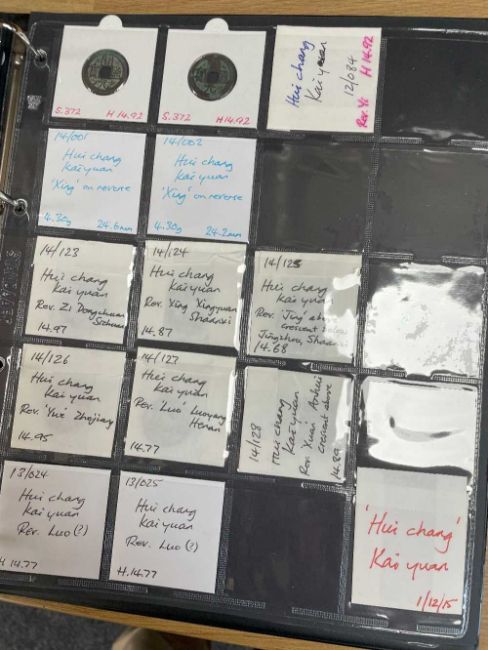 S.372 H14.92
S.372 H14.92
Hui chang
Kai yuan
12/084
Rev. Yi H 14.92
14/001
Hui chang
Kai yuan
'Xing' on reverse
4.30g 24.6mm
14/002
Hui chang
Kai yuan
'Xing' on reverse
4.30g 24.2mm
14/123
Hui chang
Kai yuan
Rev. Zi Dongchuan
14.97
14/124
Hui chang
Kai yuan
Rev. Xing Xingyuan
Shaanxi
14.87
14/125
Hui chang
Kai yuan
Rev. 'Jing'
crescent
14.68
14/126
Hui chang
Kai yuan
Rev. 'Yue' Zhejiang
14.95
14/127
Hui chang
Kai yuan
Rev. 'Luo' Luoyang
Henan
14.77
14/128
Hui chang
Kai yuan
Rev. 'Xuan' Anhui
crescent above
13/024
Hui chang
Kai yuan
Rev. Luo (?)
H.14.77
13/025
Hui chang
Kai yuan
Rev. Luo (?)
H.14.77
'Hui chang'
Kai yuan
1/12/15